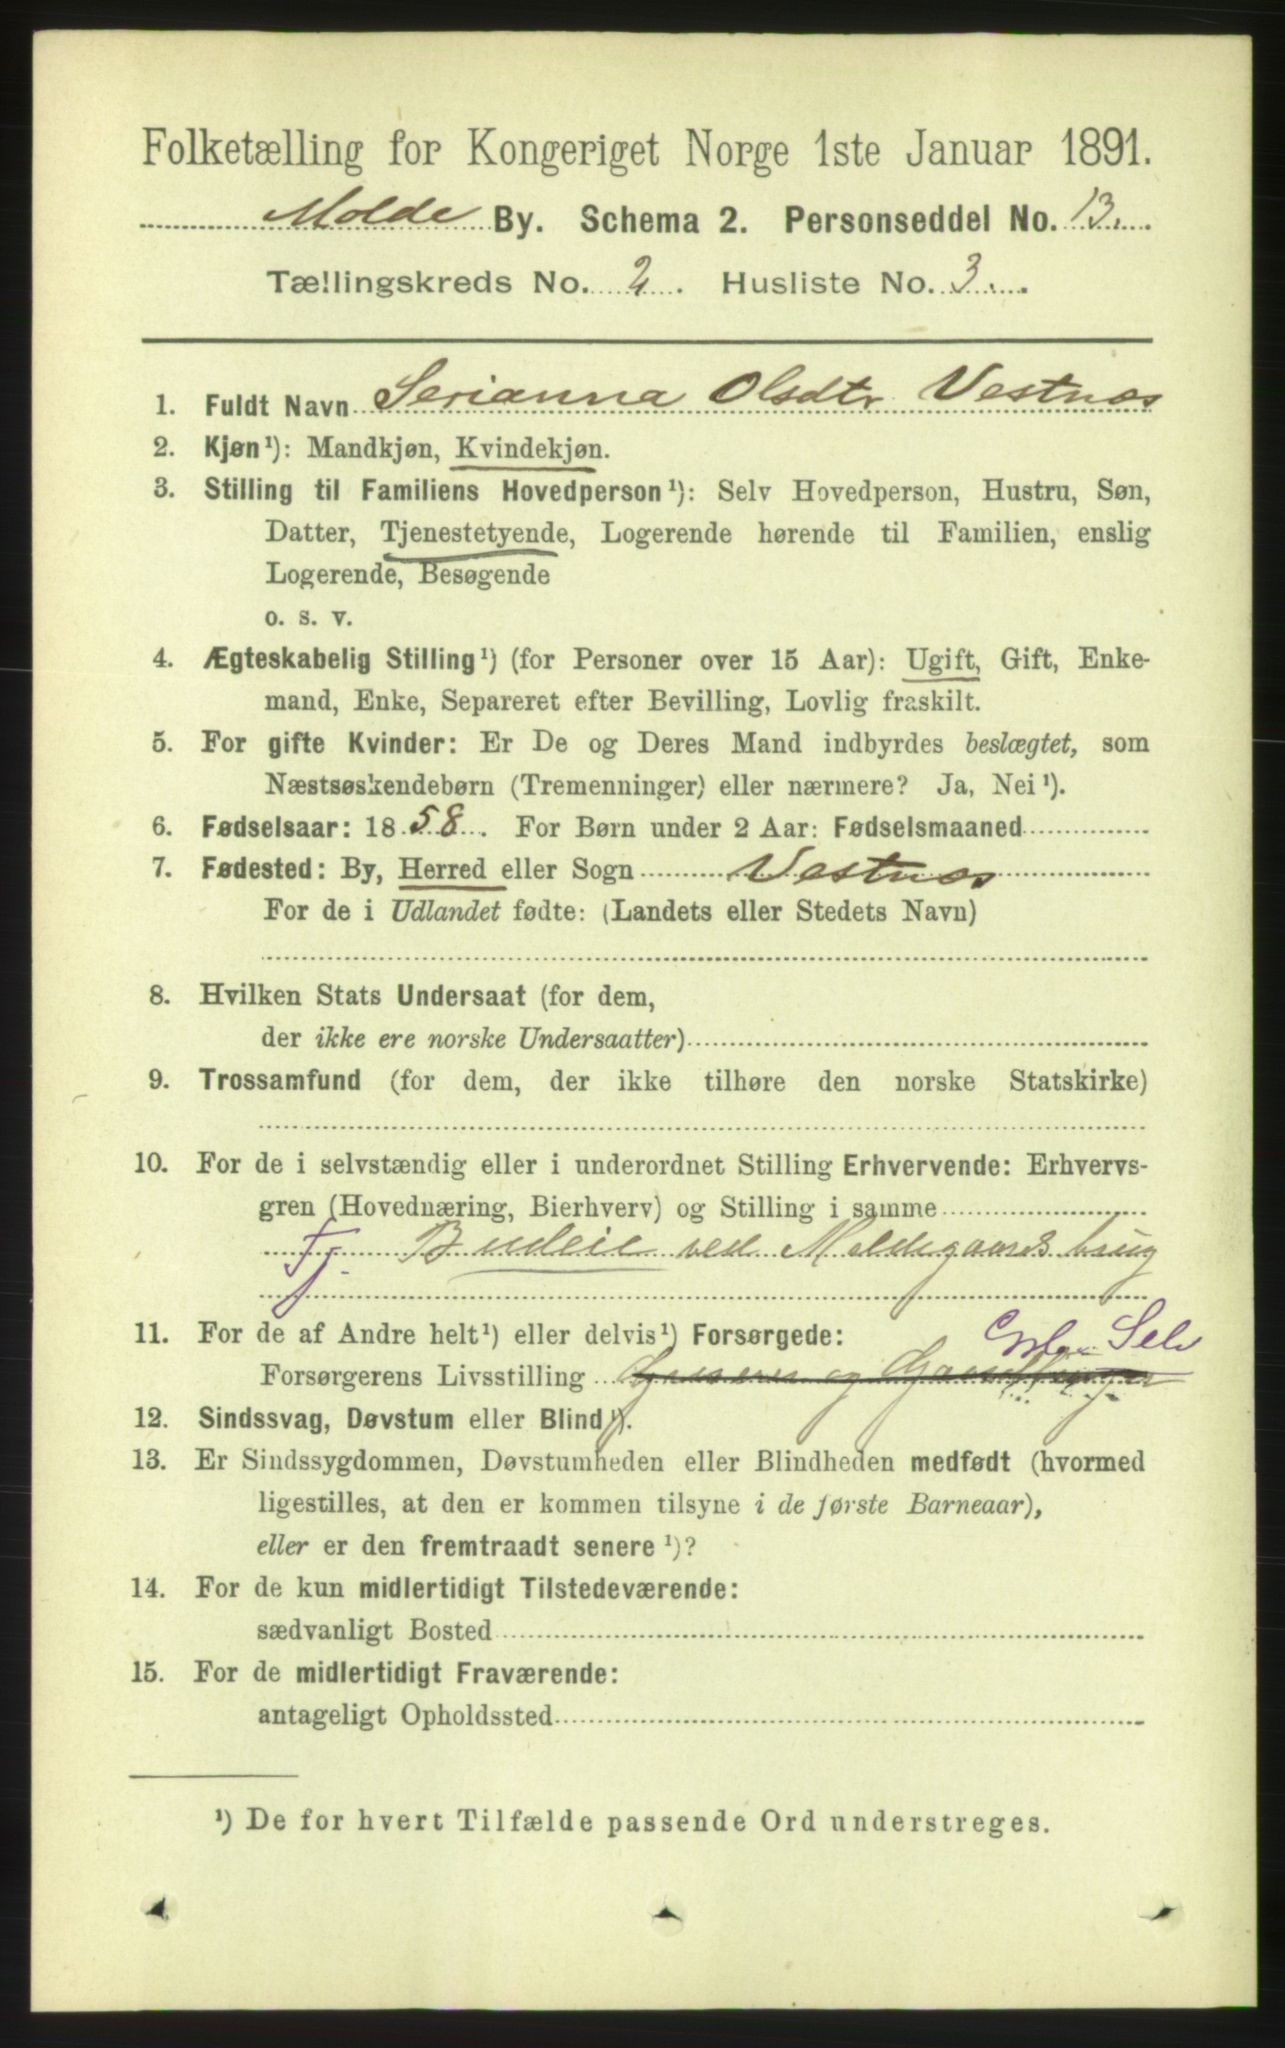 Folketælling for Kongeriget Norge 1ste Januar 1891.
Molde By. Schema 2. Personseddel No. 13.
Tællingskreds No. 2. Husliste No. 3.
1. Fuldt Navn Serianna Olsdtr Vestnæs
2. Kjøn¹): Mandkjøn, Kvindekjøn.
3. Stilling til Familiens Hovedperson¹): Selv Hovedperson, Hustru, Søn,
Datter, Tjenestetyende, Logerende hørende til Familien, enslig
Logerende, Besøgende
o. s. v.
4. Ægteskabelig Stilling¹) (for Personer over 15 Aar): Ugift, Gift, Enke-
mand, Enke, Separeret efter Bevilling, Lovlig fraskilt.
5. For gifte Kvinder: Er De og Deres Mand indbyrdes beslægtet, som
Næstsøskendebørn (Tremenninger) eller nærmere? Ja, Nei¹).
6. Fødselsaar: 1858. For Børn under 2 Aar: Fødselsmaaned
7. Fødested: By, Herred eller Sogn Vestnæs
For de i Udlandet fødte: (Landets eller Stedets Navn)
8. Hvilken Stats Undersaat (for dem,
der ikke ere norske Undersaatter)
9. Trossamfund (for dem, der ikke tilhøre den norske Statskirke)
10. For de i selvstændig eller i underordnet Stilling Erhvervende: Erhvervs-
gren (Hovednæring, Bierhverv) og Stilling i samme
Tj. Budeie ved Moldegaards brug
11. For de af Andre helt¹) eller delvis¹) Forsørgede:
Selv
Forsørgerens Livsstilling og
12. Sindssvag, Døvstum eller Blind¹).
13. Er Sindssygdommen, Døvstumheden eller Blindheden medfødt (hvormed
ligestilles, at den er kommen tilsyne i de første Barneaar),
eller er den fremtraadt senere¹)?
14. For de kun midlertidigt Tilstedeværende:
sædvanligt Bosted
15. For de midlertidigt Fraværende:
antageligt Opholdssted
¹) De for hvert Tilfælde passende Ord understreges.